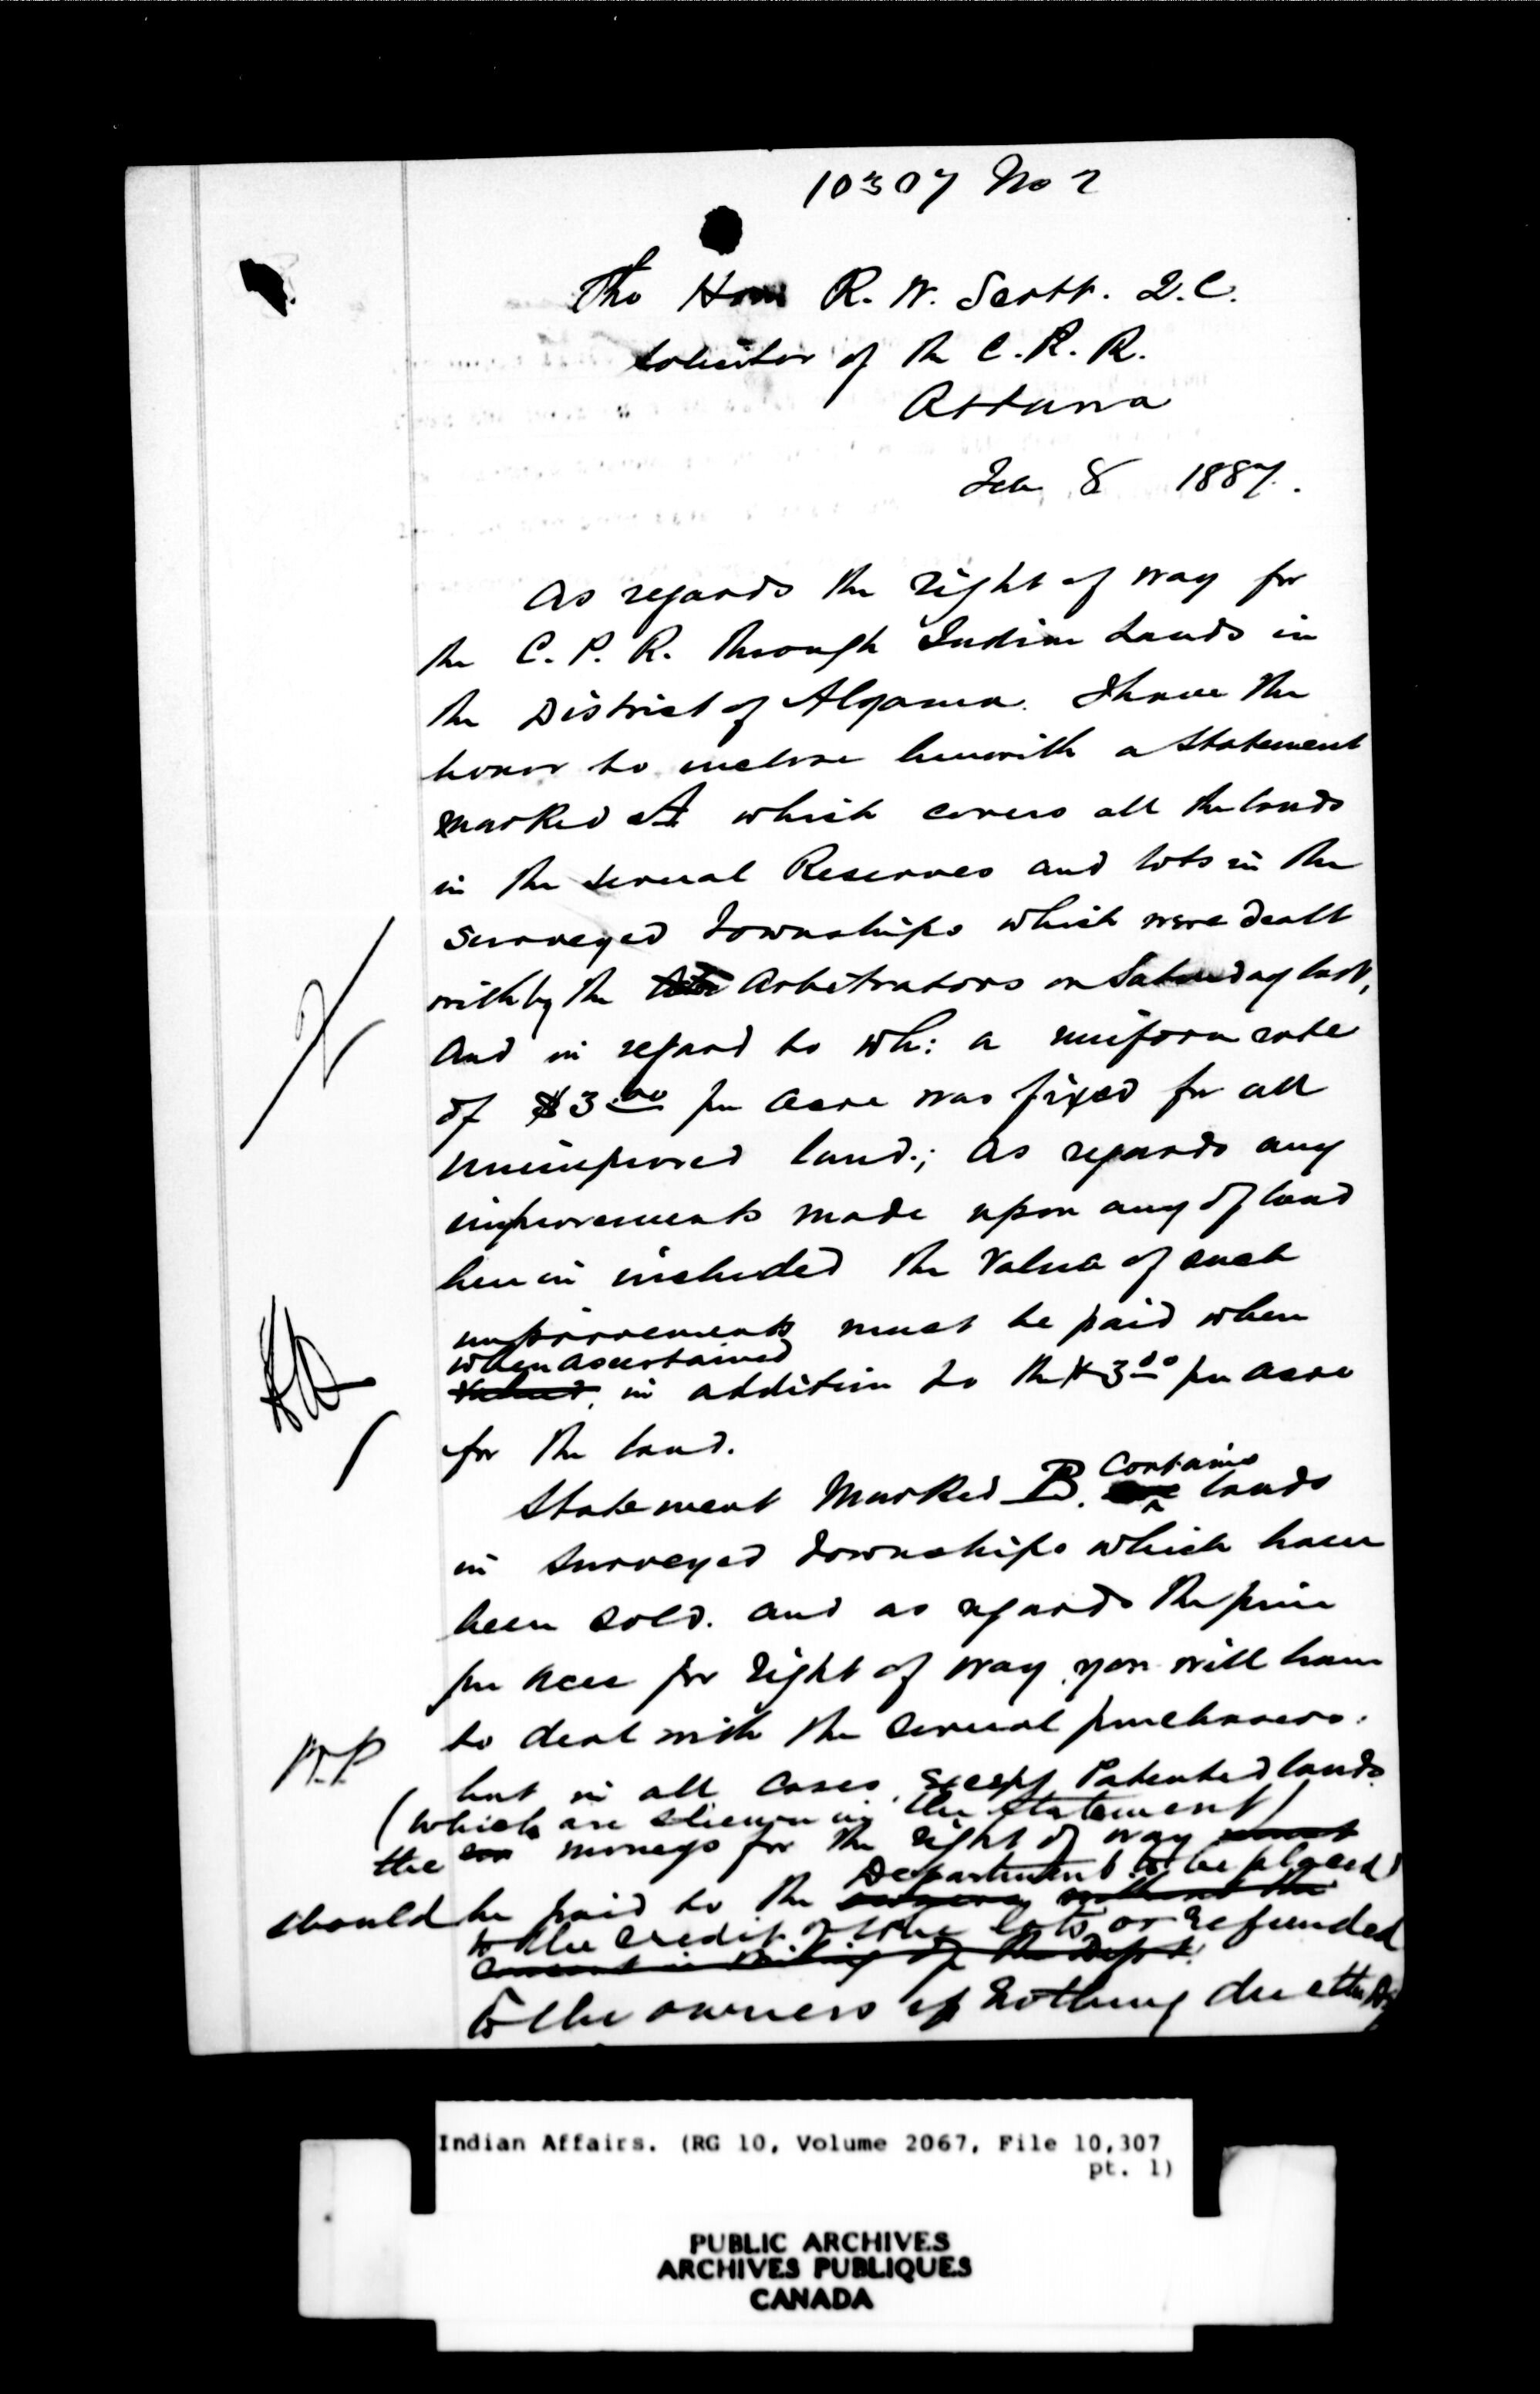 10307 No 2
The Hon R. W. Scott. Q.C.
Solicitor of the C. P. R.
Ottawa
Feb 8 1887.
As regards the right of way for
the C. P. R. through Indian Lands in
the District of Algoma. I have the
honor to inclose herewith a Statement
marked A which covers all the lands
in the several Reserves and lots in the
surveyed Townships which were dealt
with by the Arbitrators on Saturday last,
and in regard to wh: a uniform rate
of $3.00 per acre was fixed for all
unimproved land.; as regards any
improvements made upon any of land
herein included the value of such
improvements must be paid when
when ascertained
valued, in addition to the $3.00 per acre
for the land.
Statement Marked B. contains lands
in Surveyed Townships which have
been sold. and as regards the price
per acre for right of way, you will have
to deal with the several purchasers.
W.P
but in all cases, except Patented lands
(which are shewn in the statement)
the moneys for the right of way must
Department to be placed
should be paid to the without the
to the credit of the lots or refunded
consent in writing of the Dept.
to the owners if nothing due
Indian Affairs. (RG 10, Volume 2067, File 10,307
pt. 1)
PUBLIC ARCHIVES
ARCHIVES PUBLIQUES
CANADA